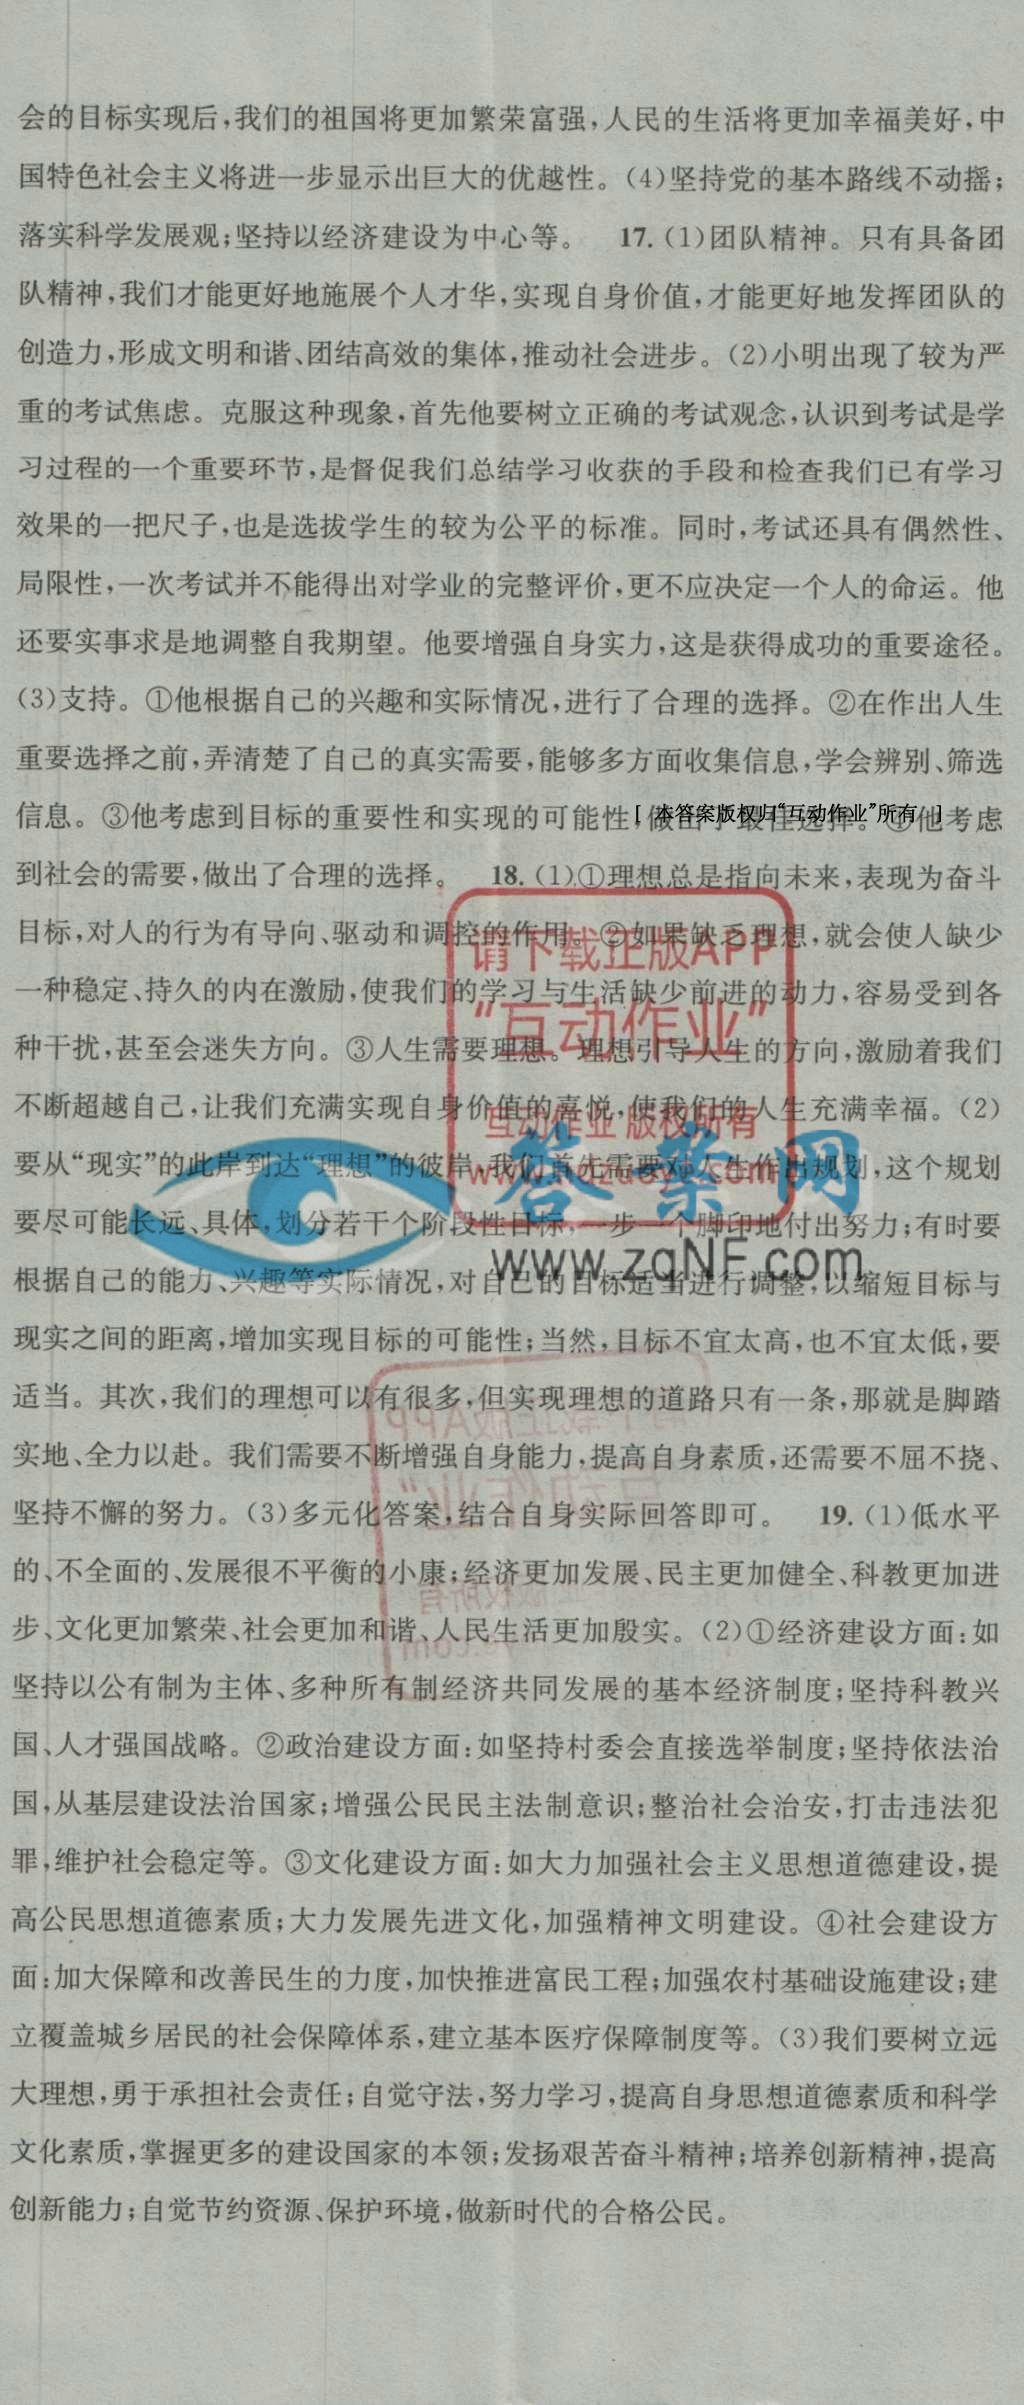 会的目标实现后,我们的祖国将更加繁荣富强,人民的生活将更加幸福美好,中
国特色社会主义将进一步显示出巨大的优越性。(4)坚持党的基本路线不动摇;
落实科学发展观;坚持以经济建设为中心等。 17.(1)团队精神。只有具备团
队精神,我们才能更好地施展个人才华,实现自身价值,才能更好地发挥团队的
创造力,形成文明和谐、团结高效的集体,推动社会进步。(2)小明出现了较为严
重的考试焦虑。克服这种现象,首先他要树立正确的考试观念,认识到考试是学
习过程的一个重要环节,是督促我们总结学习收获的手段和检查我们已有学习
效果的一把尺子,也是选拔学生的较为公平的标准。同时,考试还具有偶然性、
局限性,一次考试并不能得出对学业的完整评价,更不应决定一个人的命运。他
还要实事求是地调整自我期望。他要增强自身实力,这是获得成功的重要途径。
(3)支持。①他根据自己的兴趣和实际情况,进行了合理的选择。②在作出人生
重要选择之前,弄清楚了自己的真实需要,能够多方面收集信息,学会辨别、筛选
信息。③他考虑到目标的重要性和实现的可能性,做出了最佳选择。④他考虑
[ 本答案版权归“互动作业”所有 ]
到社会的需要,做出了合理的选择。 18.(1)①理想总是指向未来,表现为奋斗
目标,对人的行为有导向、驱动和调控的作用。②如果缺乏理想,就会使人缺少
请下载正版APP
一种稳定、持久的内在激励,使我们的学习与生活缺少前进的动力,容易受到各
“互动作业”
种干扰,甚至会迷失方向。③人生需要理想。理想引导人生的方向,激励着我们
不断超越自己,让我们充满实现自身价值的喜悦,使我们的人生充满幸福。(2)
互动作业 版权所有
要从“现实”的此岸到达“理想”的彼岸,我们首先需要对人生作出规划,这个规划
答案网
要尽可能长远、具体,划分若干个阶段性目标,一步一个脚印地付出努力;有时要
www.zqNF.com
根据自己的能力、兴趣等实际情况,对自己的目标适当进行调整,以缩短目标与
现实之间的距离,增加实现目标的可能性;当然,目标不宜太高,也不宜太低,要
适当。其次,我们的理想可以有很多,但实现理想的道路只有一条,那就是脚踏
实地、全力以赴。我们需要不断增强自身能力,提高自身素质,还需要不屈不挠、
坚持不懈的努力。(3)多元化答案,结合自身实际回答即可。 19.(1)低水平
的、不全面的、发展很不平衡的小康;经济更加发展、民主更加健全、科教更加进
步、文化更加繁荣、社会更加和谐、人民生活更加殷实。(2)①经济建设方面:如
坚持以公有制为主体、多种所有制经济共同发展的基本经济制度;坚持科教兴
国、人才强国战略。②政治建设方面:如坚持村委会直接选举制度;坚持依法治
国,从基层建设法治国家;增强公民民主法制意识;整治社会治安,打击违法犯
罪,维护社会稳定等。③文化建设方面:如大力加强社会主义思想道德建设,提
高公民思想道德素质;大力发展先进文化,加强精神文明建设。④社会建设方
面:加大保障和改善民生的力度,加快推进富民工程;加强农村基础设施建设;建
立覆盖城乡居民的社会保障体系,建立基本医疗保障制度等。(3)我们要树立远
大理想,勇于承担社会责任;自觉守法,努力学习,提高自身思想道德素质和科学
文化素质,掌握更多的建设国家的本领;发扬艰苦奋斗精神;培养创新精神,提高
创新能力;自觉节约资源、保护环境,做新时代的合格公民。